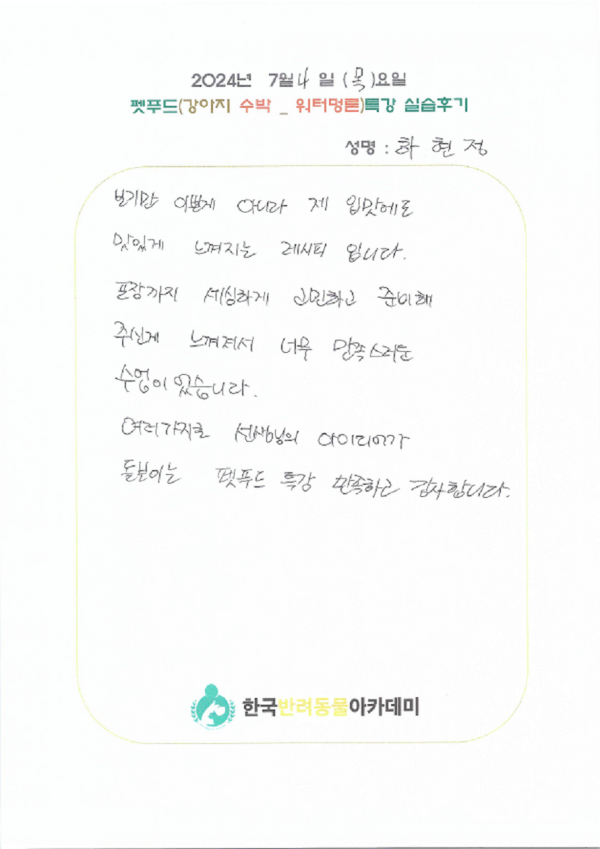 2024년 7월 4일 (목)요일
펫푸드(강아지 수박 _ 워터멍론)특강 실습후기
성명 : 하현정
보기만 이쁜게 아니라 제 입맛에도
맛있게 느껴지는 레시피 입니다.
포장까지 세심하게 고민하고 준비해
주신게 느껴져서 너무 만족스러운
수업이 었습니다.
여러가지로 선생님의 아이디어가
돋보이는 펫푸드 특강 만족하고 감사합니다.
한국반려동물아카데미